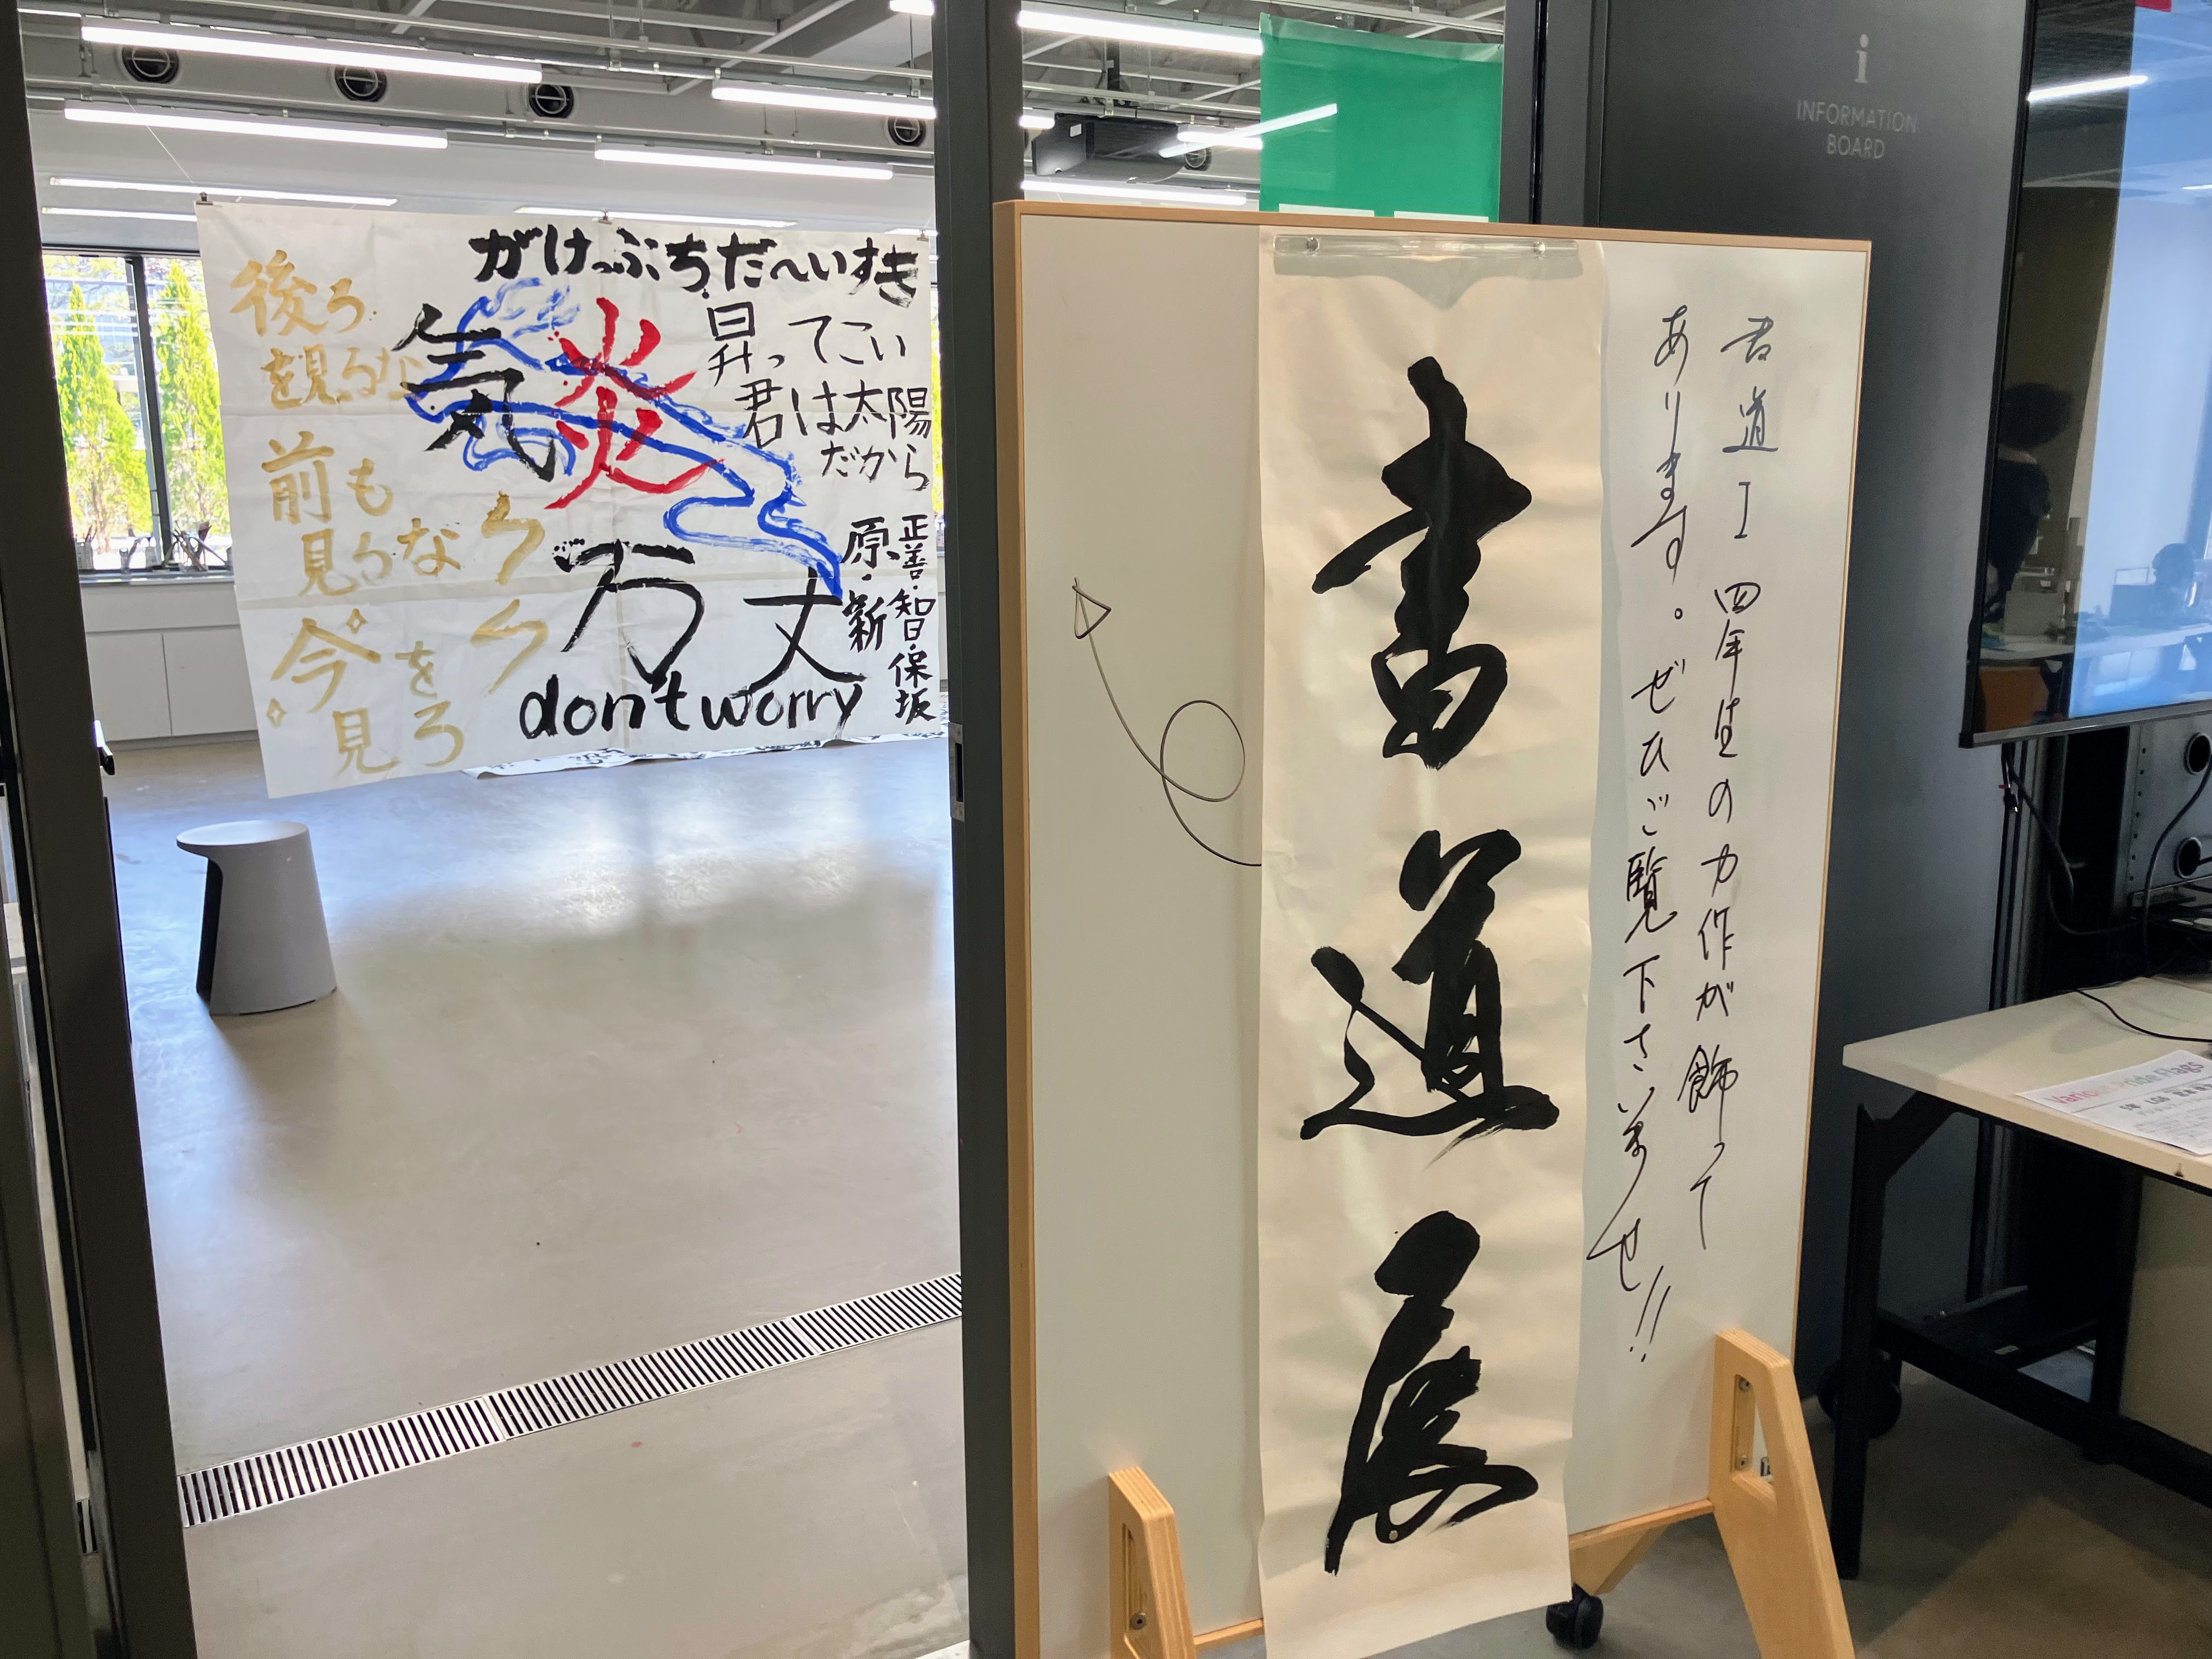 がけっぷちだ〜いすき
気炎
万丈
昇ってこい
君は太陽
だから
正善・智・保坂
原・新
後ろ
を見るな
前も
見るな
今を
見ろ
don't worry
書道展
書道I 四年生の力作が飾って
あります。ぜひご覧下さいませ!!
i
INFORMATION
BOARD